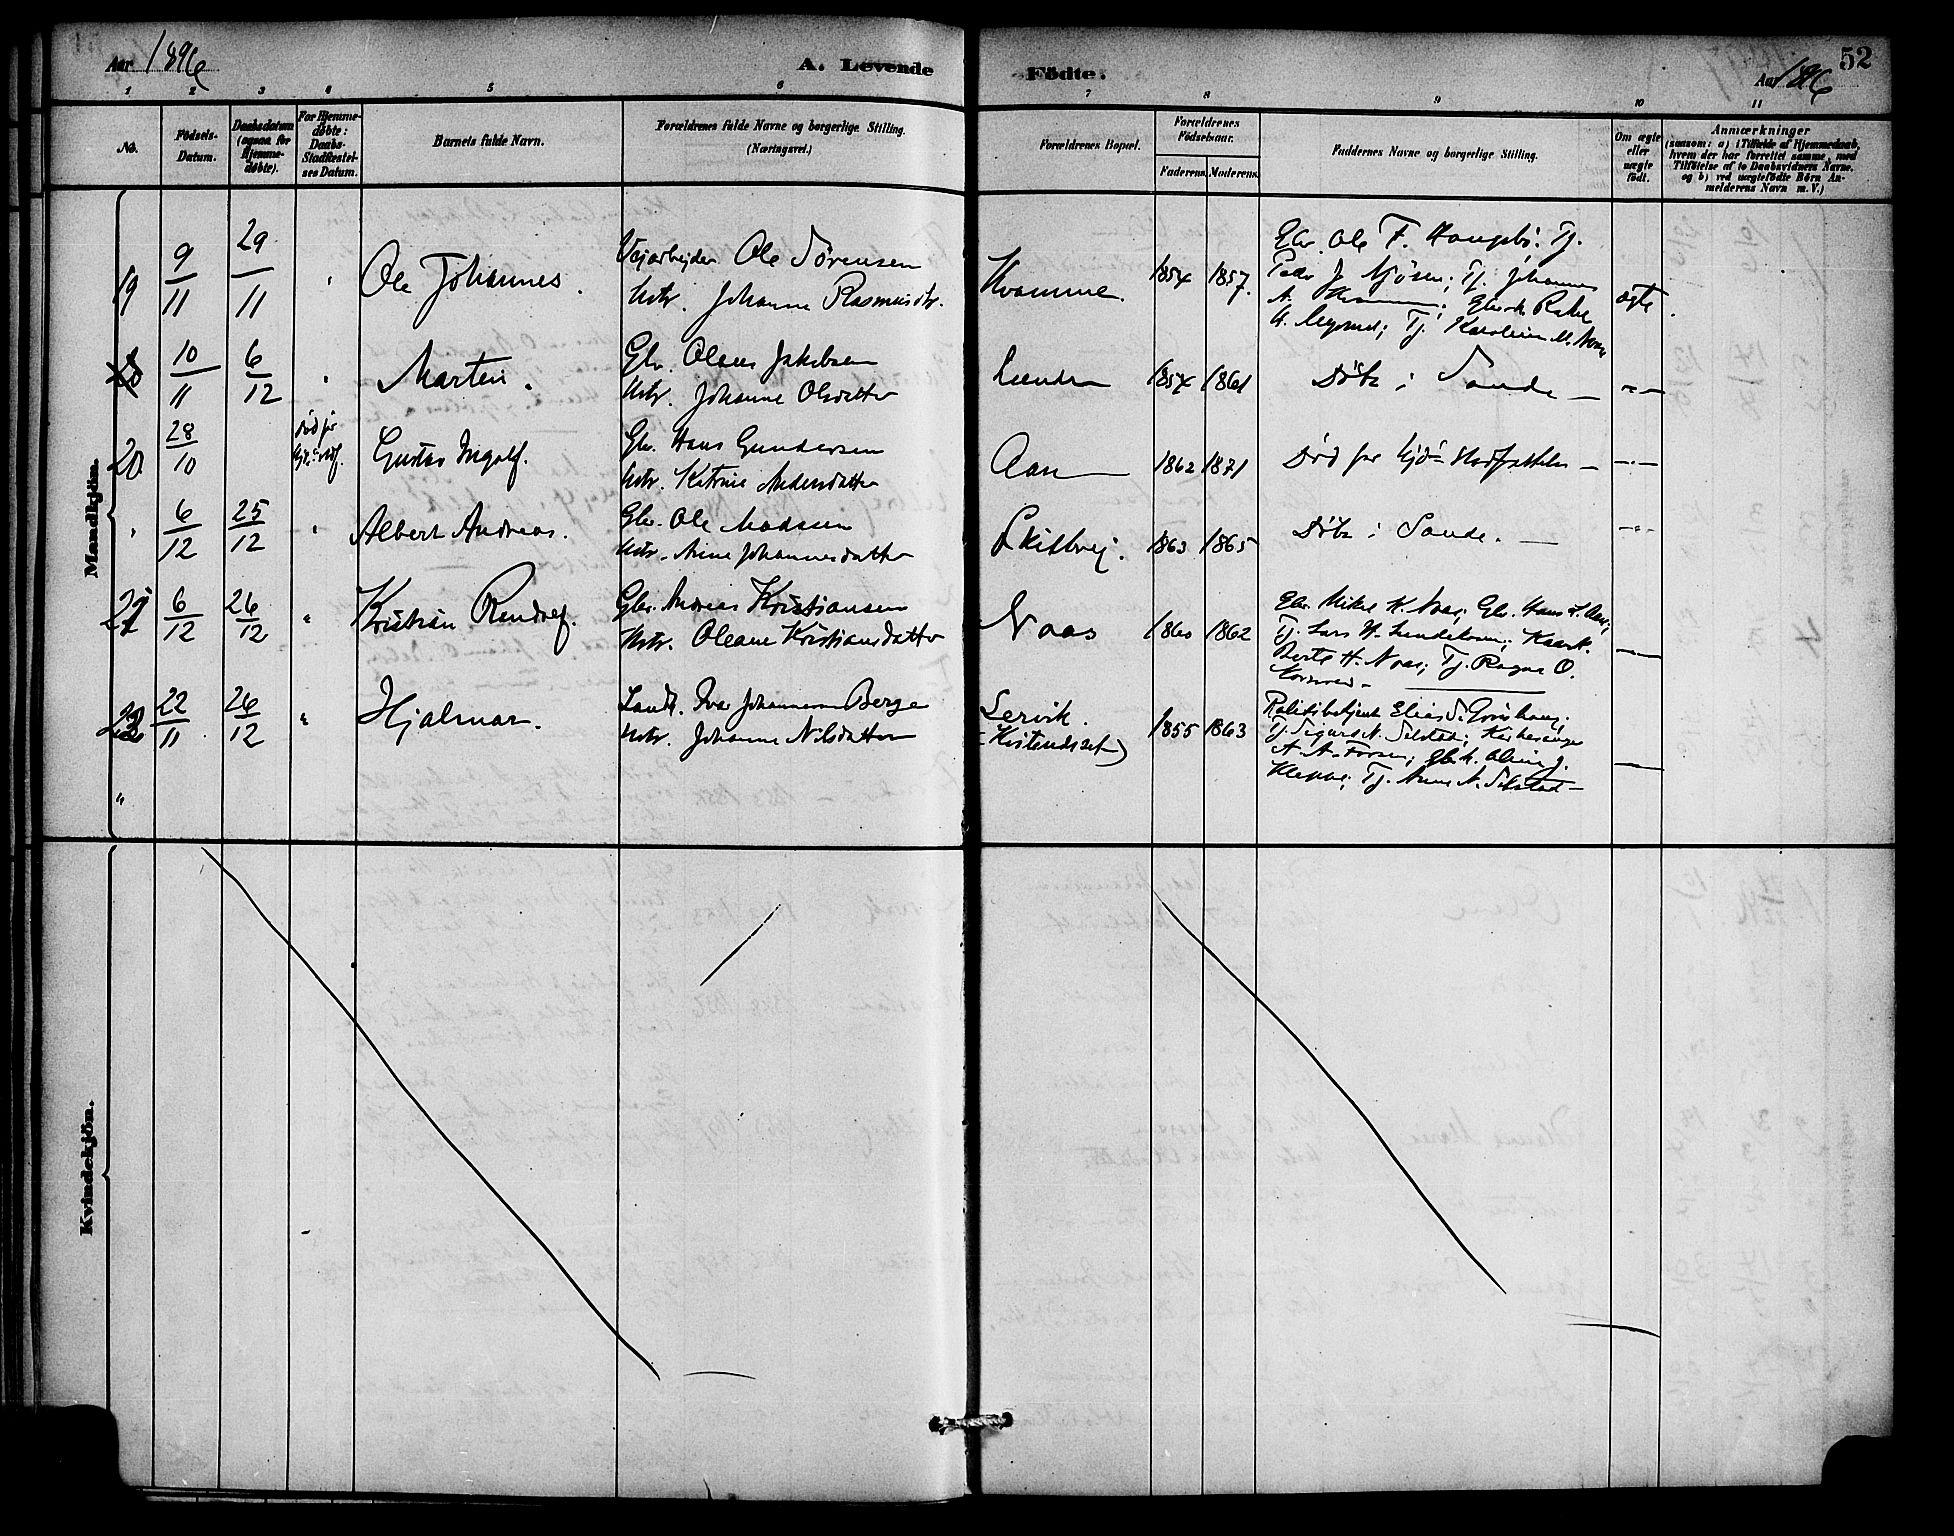 Aar 1896
A. Levende
Födte.
52
Aar 1896
1 2 3 4 5 6
7 8 9 10 11
No.
Födsels-
Datum.
Daabsdatum
(ogsaa for
Hjemme-
døbte).
For Hjemme-
døbte:
Daabs-
Stadfæstel-
ses Datum.
Barnets fulde Navn.
Forældrenes fulde Navne og borgerlige Stilling.
(Næringsvei.)
Forældrenes Bopæl.
Forældrenes
Födselsaar.
Faderens. Moderens.
Faddernes Navne og borgerlige Stilling.
Om ægte
eller
uægte
födt.
Anmærkninger
(saasom: a) i Tilfælde af Hjemmedaab,
hvem der har forrettet samme, med
Tilföielse af to Daabsvidners Navne,
og b) ved uægtefödte Börn An-
melderens Navn m. V.)
Mandkjön.
19 9/11 29/11 " Ole Johannes.
Vejarbejder Ole Sörensen
Hstr. Johanne Rasmusdtr.
Kvamme. 1854 1857.
Gbr. Ole F. Haugsbö; Tj.
Peder J. Njösen; Tj. Johannes
Tj. Karoline M.
ægte.
10/11 6/12 " Martin.
Gbr. Olaus Jakobsen
Hstr. Johanne Olsdatter
1854 1861 Döbt i Sande — —"—
20. 28/10 Död før Gustav Ingolf.
Gbr. Hans Gundersen
Hstr. Katrine Andersdatter
Aan 1862 1871 Död før Hjd= Stadfæstelse — —"—
" 6/12 25/12 " Albert Andreas.
Gbr. Ole Madsen
Hstr. Anne Johannesdatter
Skilbrej. 1863 1865 Döbt i Sande. — —"—
21 6/12 26/12 " Kristian Rendolf.
Gbr. Andreas Kristiansen
Hstr. Oleane Kristiansdatter
Naas 1860 1862
Gbr. Mikal K. Naas; Gbr. Hans L. Aan;
Tj. Lars H.
Berte H. Naas; Tj. Ragna O.
—
22 22/11 26/12 " Hjalmar.
Landh. Ivar Johannesen Berge
Hstr. Johanne Nilsdatter
Lervik.
1855 1863
Politibetjent Elias S.
Tj. Sigurd N. Selstad; Kirkesanger
A. A. Gbk. Oline J.
Kleppe; Tj. Anne N. Selstad —
—
"
Kvindekjön.